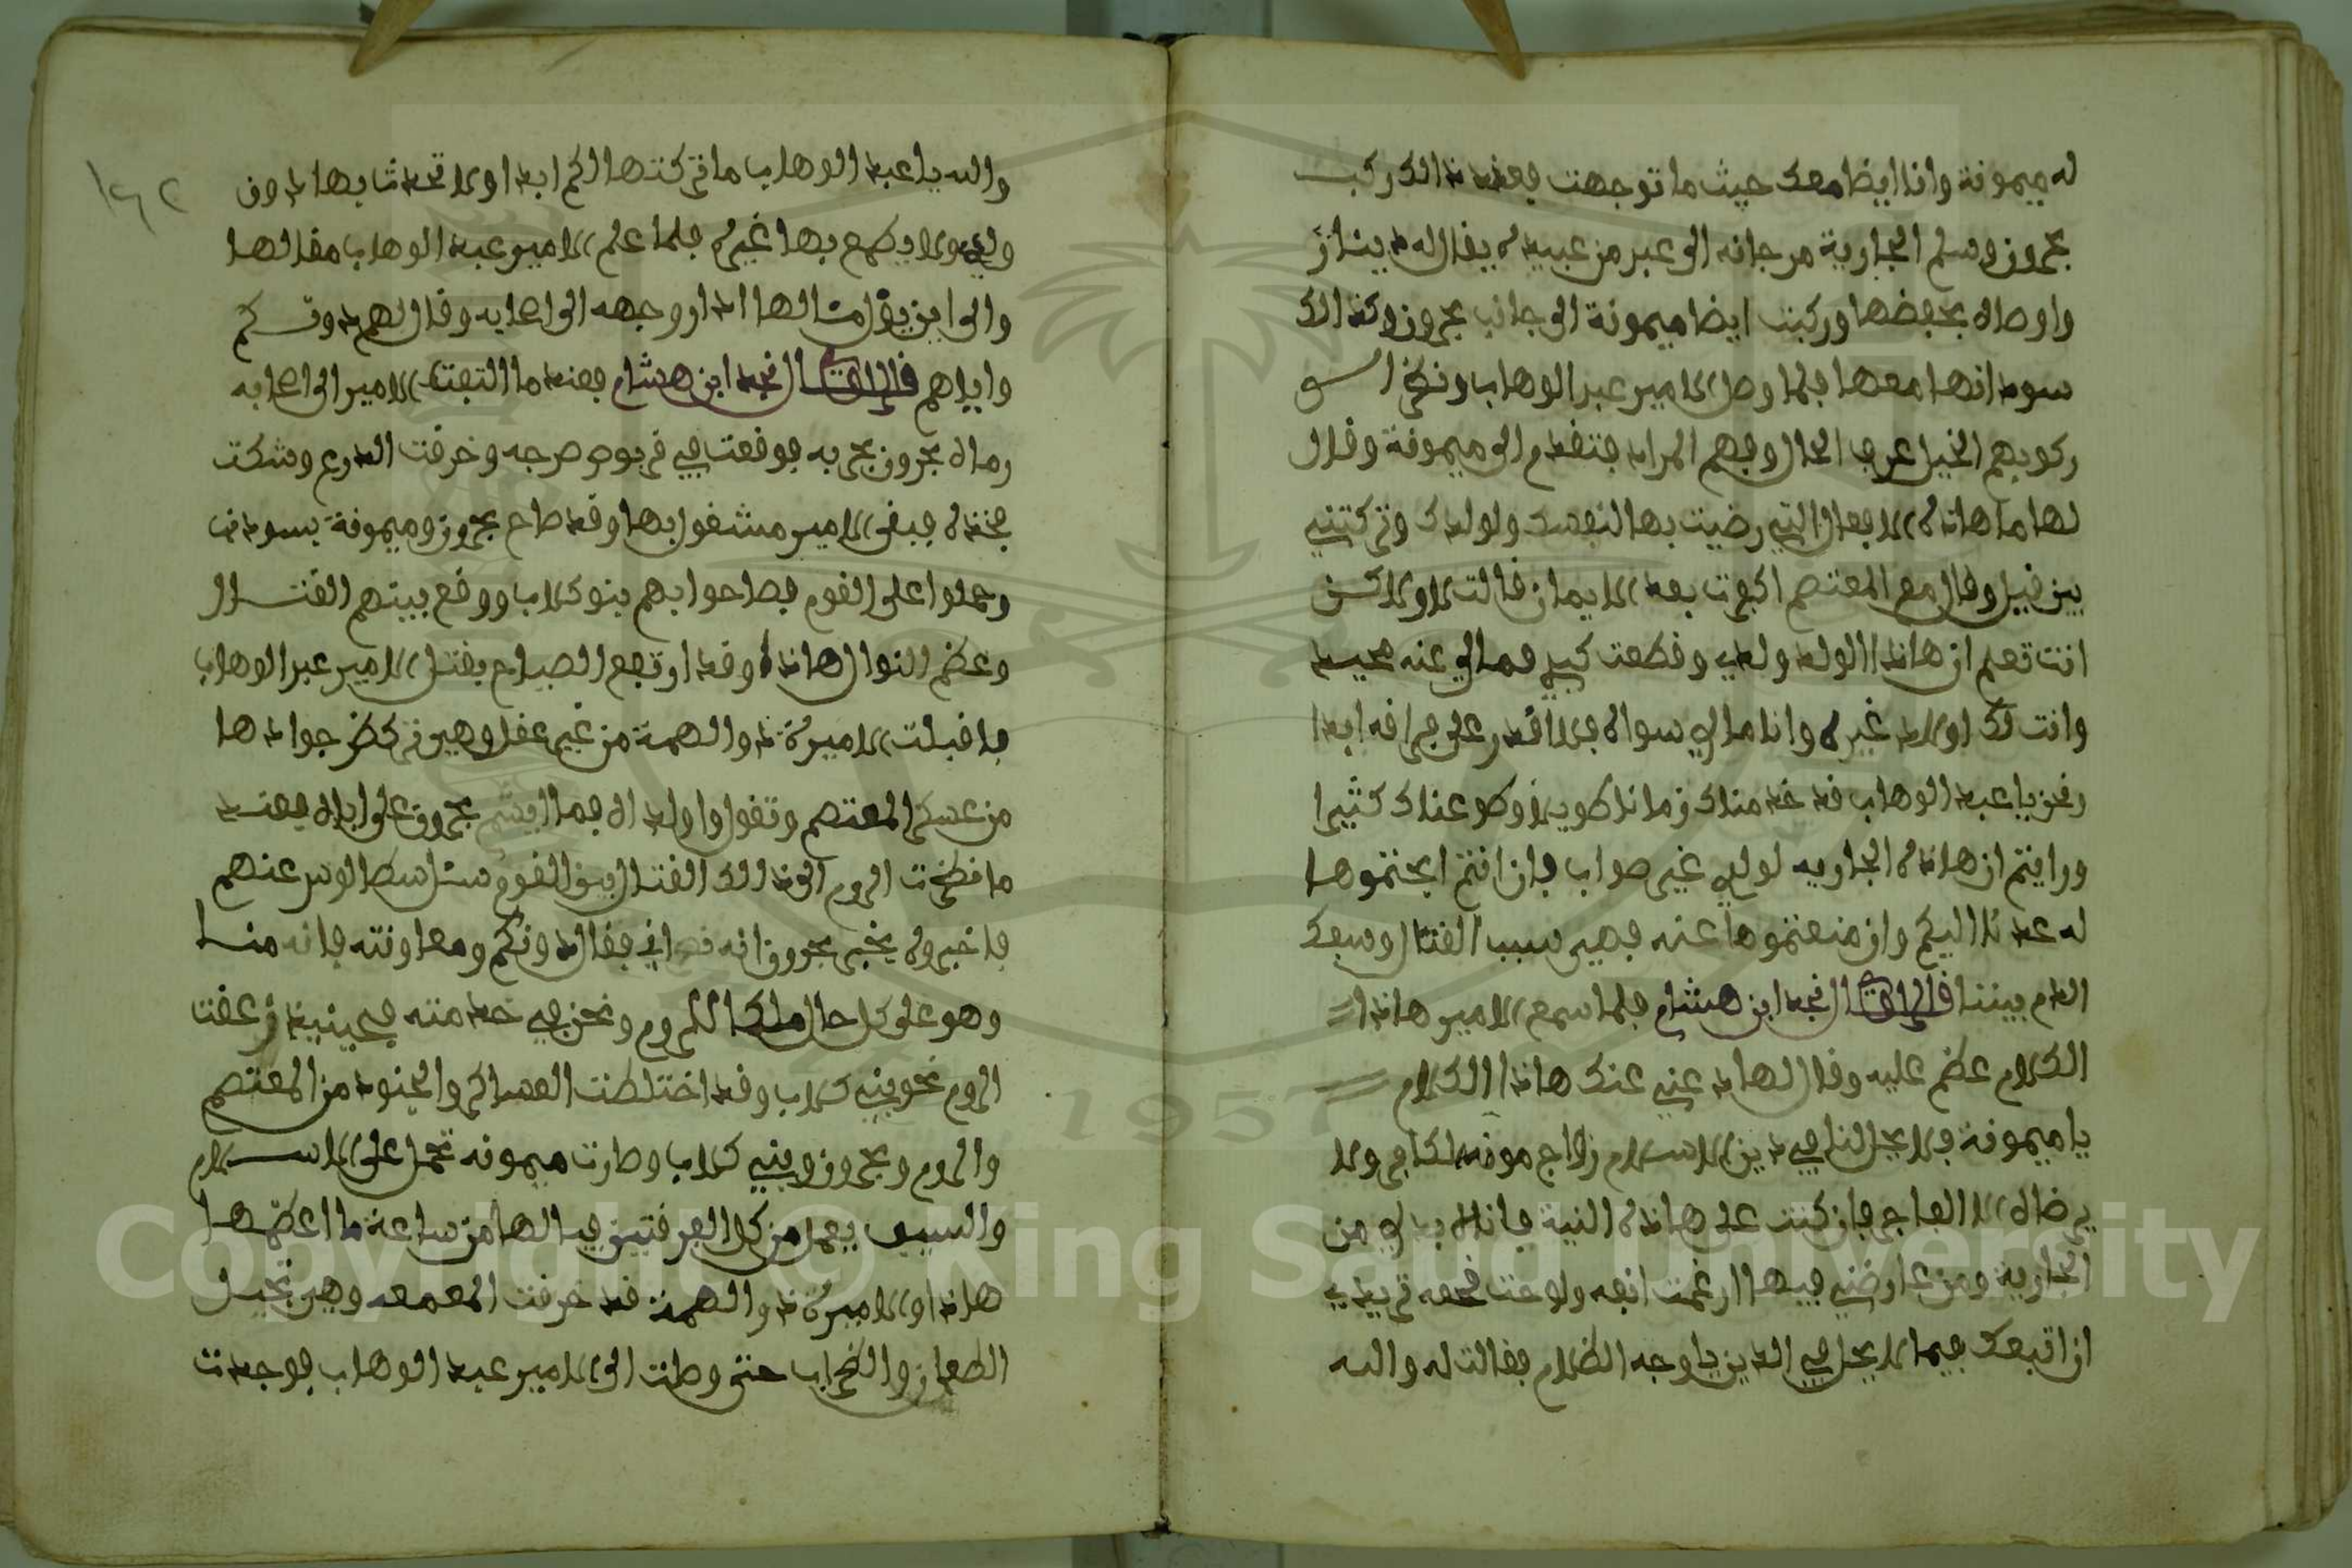 له ميمونة وانا ايضا معك حيث ما توجهت فعند ذالك ركبت
بحرون وسلم الجارية مرجانه الى عبد من عبيده يقال له دينار
واوصاه بحفضها وركبت ايضا ميمونة الى جانب بحرون وكذالك
سودانها معها فلما وصل الامير عبد الوهاب ونظر الى
ركوبهم الخيل عرف الحال وفهم المراد فتقدم الى ميمونة وقال
لها ما هاذه الافعال التي رضيت بها لنفسك ولولدك وتركتيني
بين قيل وقال مع المعتصم اكفرت بعد الايمان قالت لا ولاكن
انت تعلم ان هاذا الولد ولدي وقطعت كبدي فمالي عنه محيد
وانت لك اولاد غيره وانا مالي سواه فلا اقدر على فراقه ابدا
ونحن يا عبد الوهاب قد خدمناك زمانا طويلا وطوعناك كثيرا
ورايتم ان هاذه الجاريه لولدي غير صواب فان انتم ابحتموها
له عدنا اليكم وان منعتموها عنه فهي سبب القتال وسفك
الدم بيننا قال الراوي النجد ابن هشام فلما سمع الامير هاذا
الكلام عظم عليه وقال لها دعني عنك هاذا الكلام
يا ميمونة فلا يحل لنا في دين الاسلام زواج مومنه لكافر ولا
يرضاه الا الفاجر فان كنت على هاذه النية فانه لا بد لي من
الجارية ومن عارضني فيها ارغمت انفه ولو كنت قحفه تريدي
ان اتبعك فيما لا يحل في الدين يا وجه الظلام فقالت له والله
١٦٢
والله يا عبد الوهاب ما تركتها لكم ابدا ولا تحدثنا بها دون
ولدي ولا يطمع بها غيره فلما علم الامير عبد الوهاب مقالها
والى اين يؤل مئالها ادار وجهه الى اصحابه وقال لهم دونكم
واياهم قال الراوي النجد ابن هشام فعند ما التفت الامير الى اصحابه
رماه بحرون بحربه فوقعت في قربوص سرجه وخرقت الدرع وشكت
فخذه فبقى الامير مشغول بها وقد صاح بحرون وميمونة بسودان
وحملوا على القوم فصاحوا بهم بنو كلاب ووقع بينهم القتال
وعظم النوال هاذا وقد ارتفع الصياح بقتل الامير عبد الوهاب
فاقبلت الاميرة ذو الهمة من غير عقل وهي تركظ جوادها
من عسكر المعتصم وتقول وا ولداه فما البشر بحرون على اباه فعند
ما نظرت الروم الى ذالك القتال بين القوم سئل اسطالوس عنهم
فاخبروه بخبر بحرون انه نصراني فقال دونكم ومعاونته فانه منا
وهو على كل حال ملكا للروم ونحن في خدمته فحينيذ زعقت
الروم نحو بني كلاب وقد اختلطت العساكر والجنود من المعتصم
والروم وبحرون وبني كلاب وصارت ميمونه تحمل على الاسلام
والسيف يعمل من كل الفرقتين فيا لها من ساعة ما اعظمها
هاذا والاميرة ذو الهمة قد خرقت المعمعه وهي تجيد
الطعان والضراب حتى وصلت الى الامير عبد الوهاب فوجدت